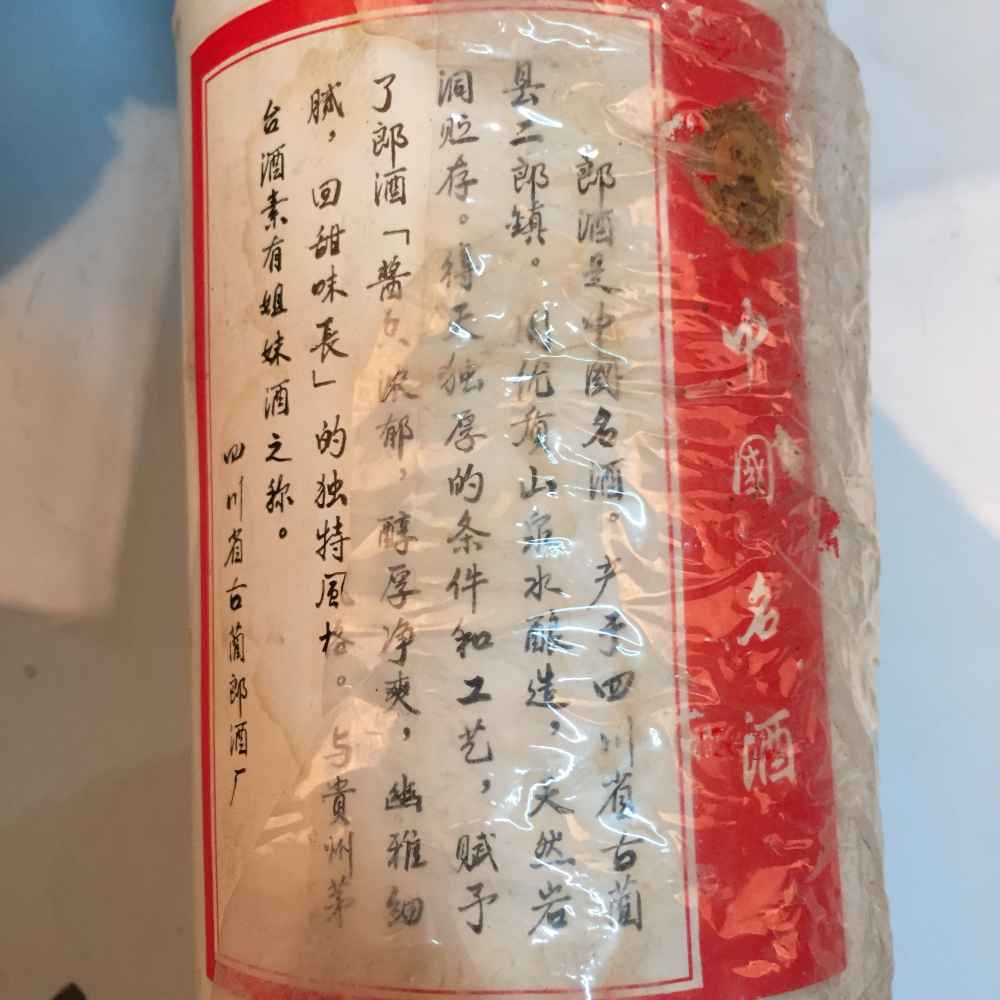 中國名酒
郎酒是中国名酒。产于四川省古蔺
县二郎镇。用优质山泉水酿造，天然岩
洞贮存。得天独厚的条件和工艺，赋予
了郎酒「酱香浓郁，醇厚净爽，幽雅细
腻，回甜味長」的独特風格。与貴州茅
台酒素有姐妹酒之称。
四川省古蔺郎酒厂